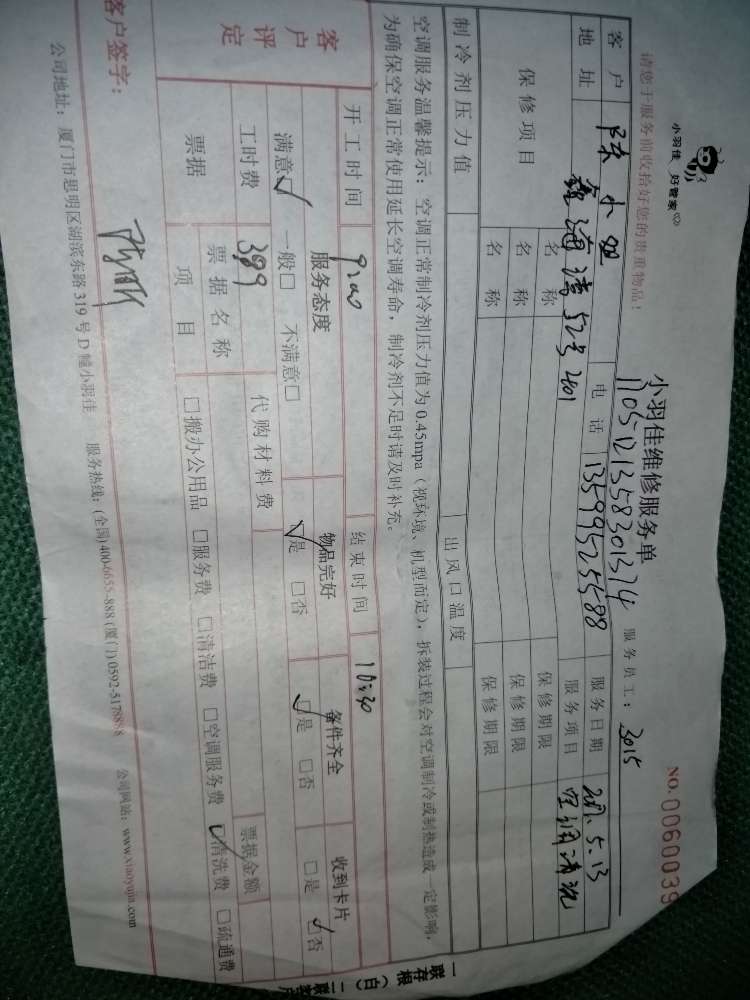 小羽佳 好管家
小羽佳维修服务单
NO.0060039
1105121358301374
服务员工：3015
请您于服务前收拾好您的贵重物品！
客户 陈小姐 电话 13599525588 服务日期 2021.5.13
地址 鑫海湾52号2401 服务项目 空调清洗
保修项目 名称 保修期限
名称 保修期限
名称 保修期限
制冷剂压力值 出风口温度
空调服务温馨提示：空调正常制冷剂压力值为0.45mpa（视环境、机型而定），拆装过程会对空调制冷或制热造成一定影响，
为确保空调正常使用延长空调寿命，制冷剂不足时请及时补充。
客户评定
开工时间 9:20 结束时间 10:30
服务态度 物品完好 备件齐全 收到卡片
满意☑ 一般□ 不满意□ ☑是 □否 ☑是 □否 □是 ☑否
工时费 399 代购材料费
票据 票据名称 票据金额
项目 □搬办公用品 □服务费 □清洁费 □空调服务费 ☑清洗费 □疏通费
客户签字：
公司地址：厦门市思明区湖滨东路319号D幢小羽佳 服务热线：(全国)400-6655-888 (厦门)0592-5178898 公司网站：www.xiaoyujia.com
一联存根（白）二联客户